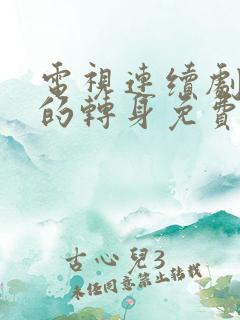 電視連續劇
的轉身免費
古心兒3
未經同意禁止轉載